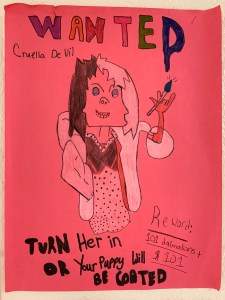 WANTED
Cruella De Vil
Reward:
101 dalmations +
$ 101
TURN Her in
OR Your Puppy Will
BE COATED